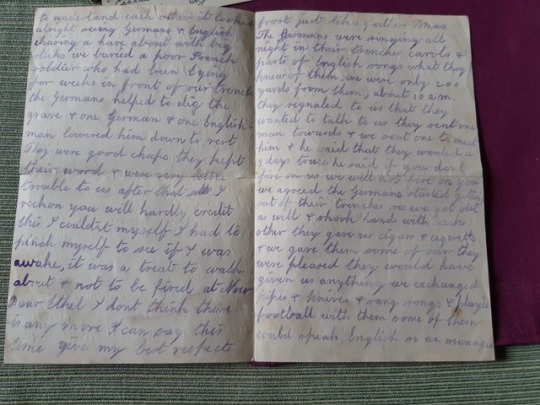 to understand each other it looked
alright seeing Germans & English
chasing a hare about with big
sticks we buried a poor French
soldier who had been lying
for weeks in front of our trench
the Germans helped to dig the
grave & one German & one English-
man lowered him down to rest
They were good chaps they kept
their word & were very little
trouble to us after that all I
rickon you will hardly credit
this I couldnt myself I had to
pinch myself to see if I was
awake, it was a treat to walk
about & not to be fired at Now
Dear Ethel I dont think there
is any more I can say this
time give my best respects
frost just like a olden Xmas
The Germans were singing all
night in their trenches carols &
parts of English songs what they
knew of them, we were only 200
yards from them, about 10 a.m.
they signaled to us that they
wanted to talk to us they sent one
man towards & we sent one to meet
him & he said that they wanted a
3 days truce he said if you dont
fire on us we will not fire on you
we agreed the Germans started getting
out of their trenches so we got out
as well & shook hands with each
other they gave us cigars & cigaretts
& we gave them some of our they
were pleased they would have
given us anything we exchanged
pipes & knives & sang songs & played
football with them some of them
could speak English so we manage